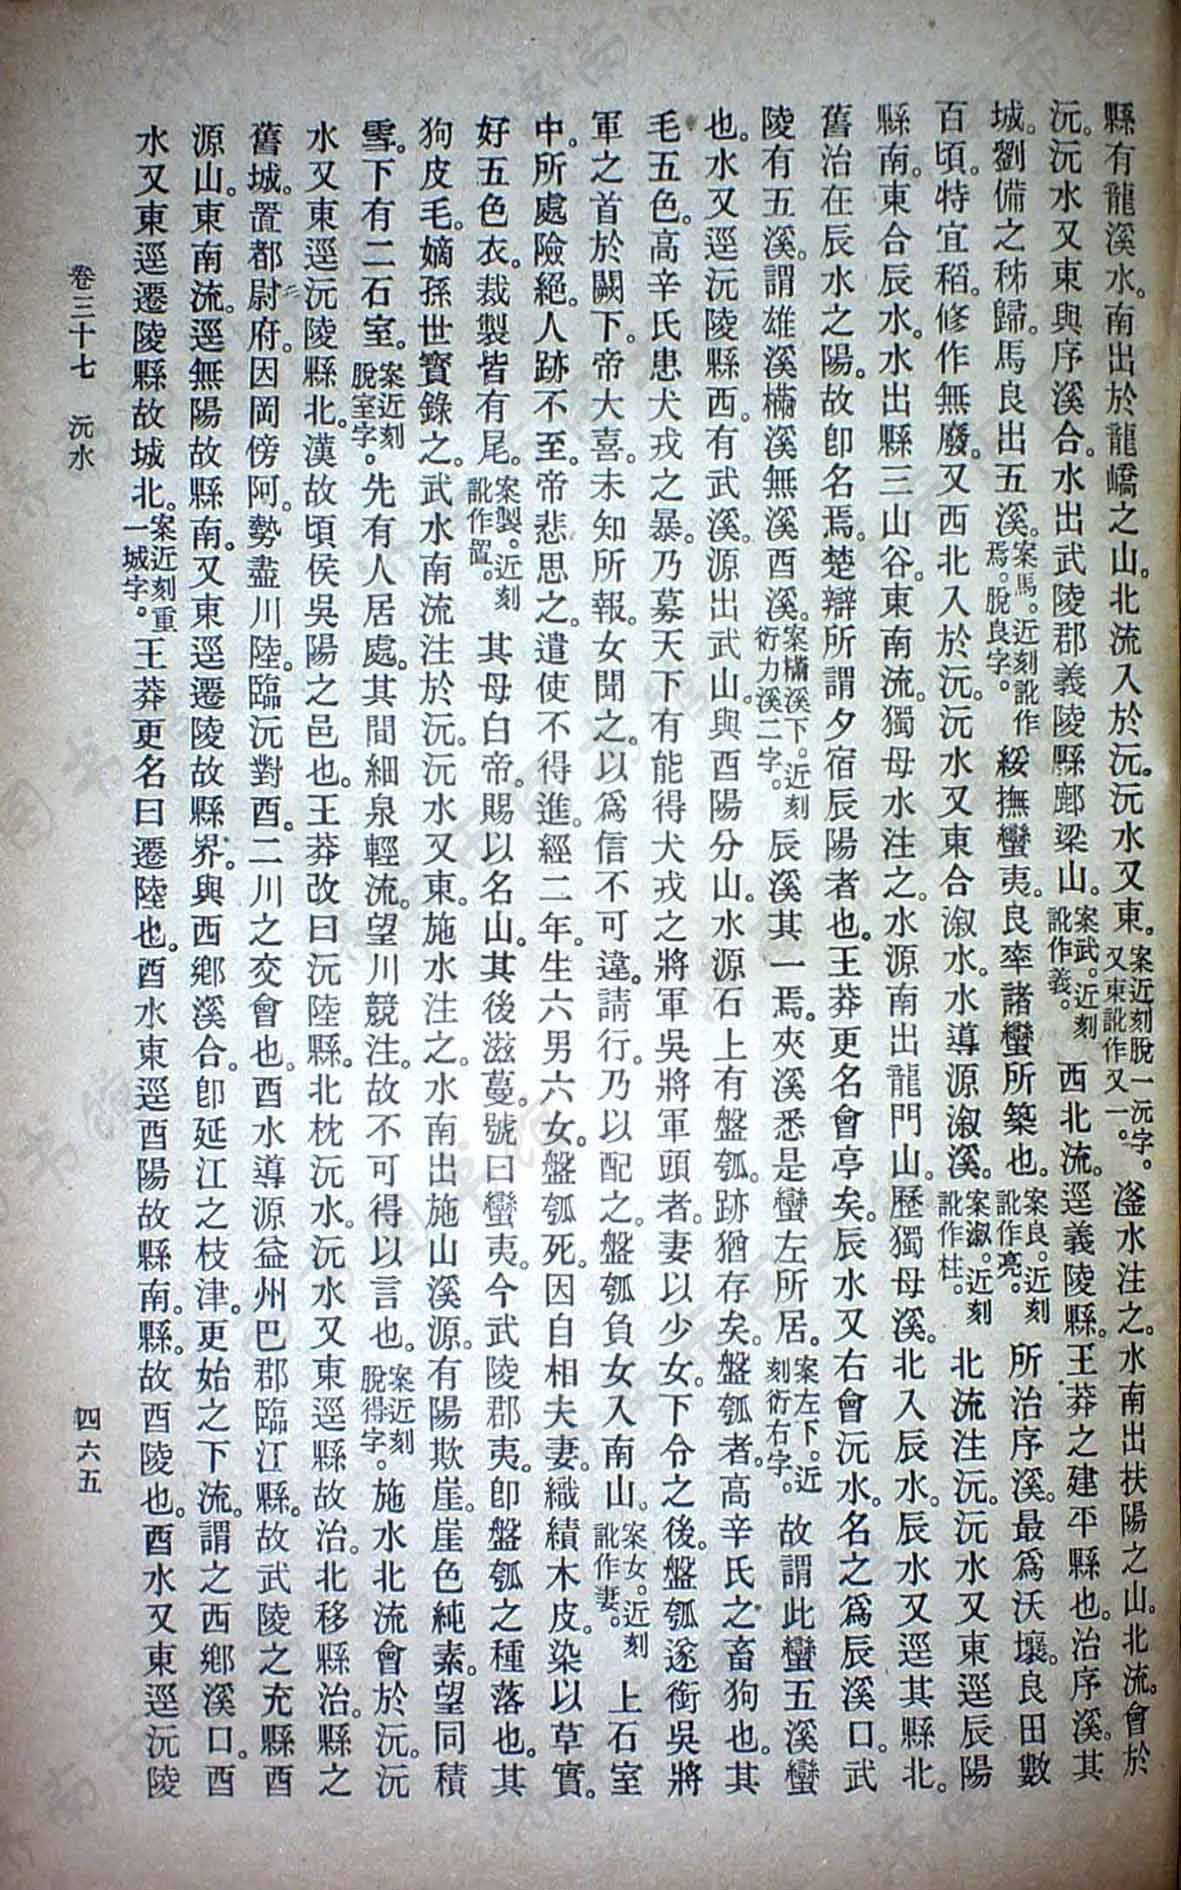 縣有龍溪水。南出於龍嶠之山。北流入於沅。沅水又東。案近刻脫一沅字。又東訛作又一。滏水注之。水南出扶陽之山。北流。會於
沅。沅水又東與序溪合。水出武陵郡義陵縣鄜梁山。案武。近刻訛作義。西北流。逕義陵縣。王莽之建平縣也。治序溪。其
城。劉備之秭歸。馬良出五溪。案馬。近刻訛作焉。脫良字。綏撫蠻夷。良率諸蠻所築也。案良。近刻訛作亮。所治序溪。最爲沃壤。良田數
百頃。特宜稻。修作無廢。又西北入於沅。沅水又東合溆水。水導源溆溪。案溆。近刻訛作柱。北流注沅。沅水又東逕辰陽
縣南。東合辰水。水出縣三山谷。東南流。獨母水注之。水源南出龍門山。歷獨母溪。北入辰水。辰水又逕其縣北。
舊治在辰水之陽。故卽名焉。楚辯所謂夕宿辰陽者也。王莽更名會亭矣。辰水又右會沅水。名之爲辰溪口。武
陵有五溪。謂雄溪樠溪無溪酉溪。案樠溪下。近刻衍力溪二字。辰溪其一焉。夾溪悉是蠻左所居。案左下。近刻衍右字。故謂此蠻五溪蠻
也。水又逕沅陵縣西。有武溪。源出武山。與酉陽分山。水源石上有盤瓠。跡猶存矣。盤瓠者。高辛氏之畜狗也。其
毛五色。高辛氏患犬戎之暴。乃募天下有能得犬戎之將軍吳將軍頭者。妻以少女。下令之後。盤瓠遂銜吳將
軍之首於闕下。帝大喜。未知所報。女聞之。以爲信不可違。請行。乃以配之。盤瓠負女入南山。案女。近刻訛作妻。上石室
中。所處險絕。人跡不至。帝悲思之。遣使不得進。經二年。生六男六女。盤瓠死。因自相夫妻。織績木皮。染以草實。
好五色衣。裁製皆有尾。案製。近刻訛作置。其母白帝。賜以名山。其後滋蔓。號曰蠻夷。今武陵郡夷。卽盤瓠之種落也。其
狗皮毛。嫡孫世寶錄之。武水南流注於沅。沅水又東。施水注之。水南出施山溪源。有陽欺崖。崖色純素。望同積
雪。下有二石室。案近刻脫室字。先有人居處。其間細泉輕流。望川競注。故不可得以言也。案近刻脫得字。施水北流會於沅。沅
水又東逕沅陵縣北。漢故頃侯吳陽之邑也。王莽改曰沅陸縣。北枕沅水。沅水又東逕縣故治。北移縣治。縣之
舊城。置都尉府。因岡傍阿。勢盡川陸。臨沅對酉。二川之交會也。酉水導源益州巴郡臨江縣。故武陵之充縣酉
源山。東南流。逕無陽故縣南。又東逕遷陵故縣界。與西鄉溪合。卽延江之枝津。更始之下流。謂之西鄉溪口。酉
水又東逕遷陵縣故城北。案近刻重一城字。王莽更名曰遷陸也。酉水東逕酉陽故縣南。縣。故酉陵也。酉水又東逕沅陵
卷三十七 沅水
四六五